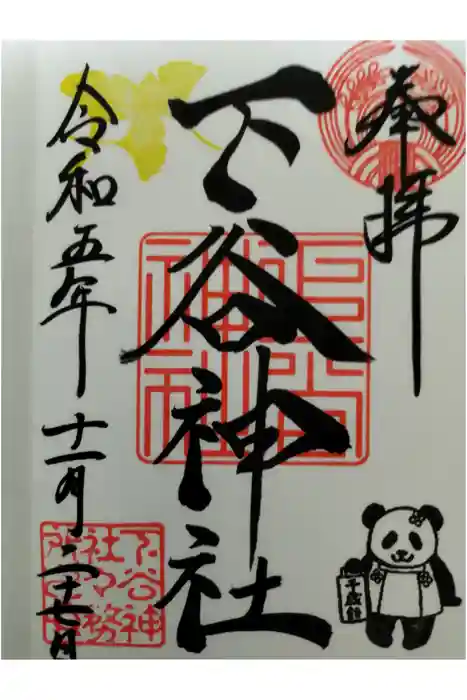 奉拝
下谷神社
令和五年十一月二十七日
下谷神
社々務
所之印
千歳飴